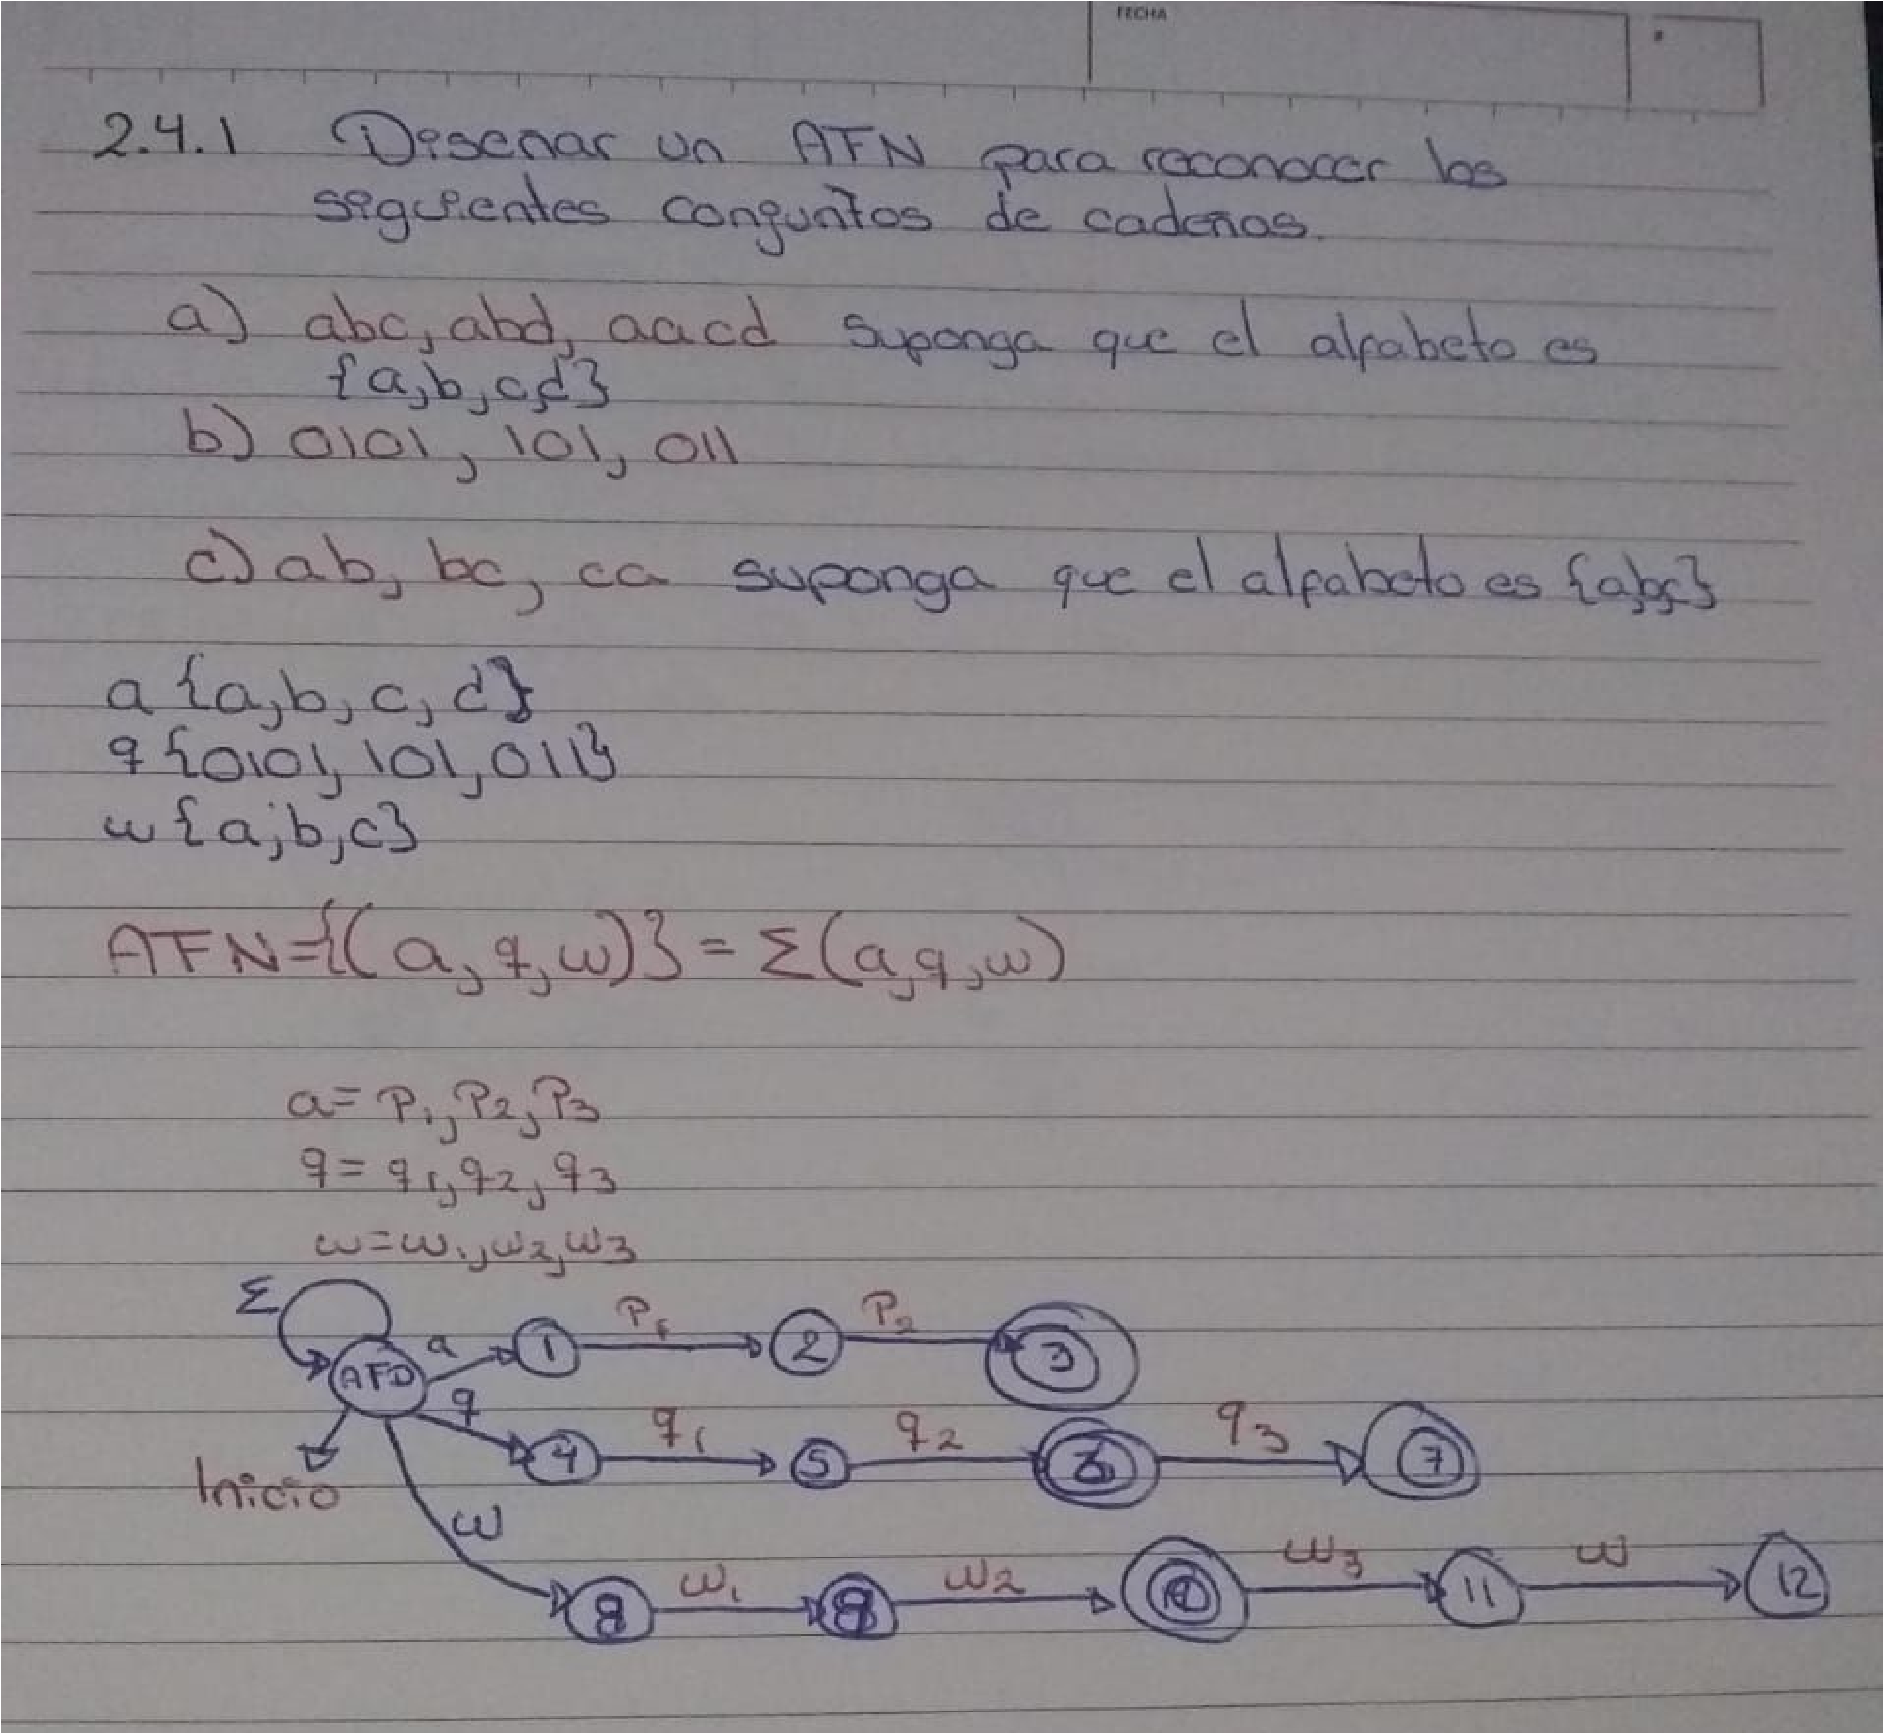 FECHA
2.4.1 Diseñar un AFN para reconocer los
siguientes conjuntos de cadenas.
a) abc, abd, aacd suponga que el alfabeto es
{a,b,c,d}
b) 0101, 101, 011
c) ab, bc, ca suponga que el alfabeto es {a,b,c}
a {a,b,c,d}
q {0101, 101, 011}
w {a,b,c}
AFN={(a,q,w)} = Σ(a,q,w)
a= P1, P2, P3
q= q1, q2, q3
w=w1,w2,w3
Σ AFD a 1 P1 2 P2 3
Inicio q 4 q1 5 q2 6 q3 7
w 8 w1 9 w2 10 w3 11 w 12